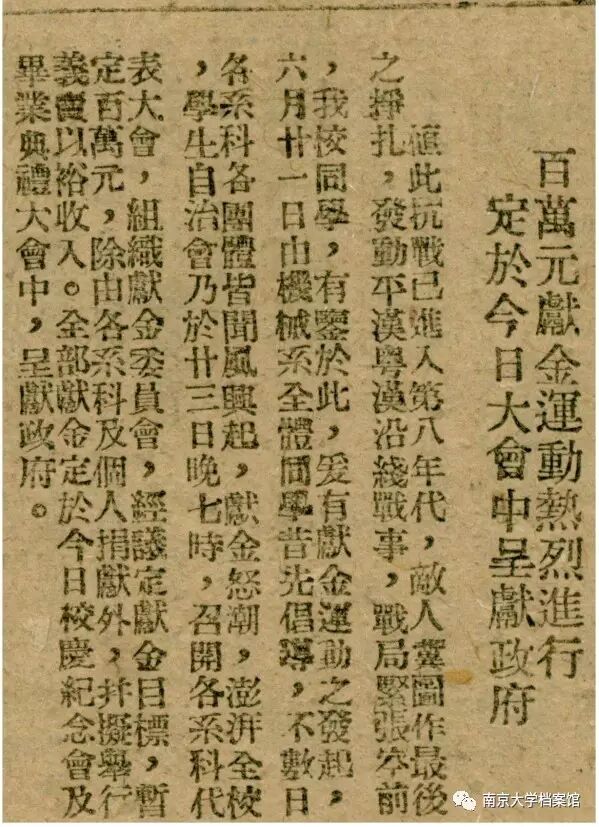 百萬元獻金運動熱烈進行
定於今日大會中呈獻政府
值此抗戰已進入第八年代，敵人冀圖作最後
之掙扎，發動平漢粵漢沿綫戰事，戰局緊張空前
，我校同學，有鑒於此，爰有獻金運動之發起，
六月廿一日由機械系全體同學首先倡導，不數日
各系科各團體皆聞風興起，獻金怒潮，澎湃全校
，學生自治會乃於廿三日晚七時，召開各系科代
表大會，組織獻金委員會，經議定獻金目標，暫
定百萬元，除由各系科及個人捐獻外，并擬舉行
義賣以裕收入。全部獻金定於今日校慶紀念會及
畢業典禮大會中，呈獻政府。
南京大学档案馆